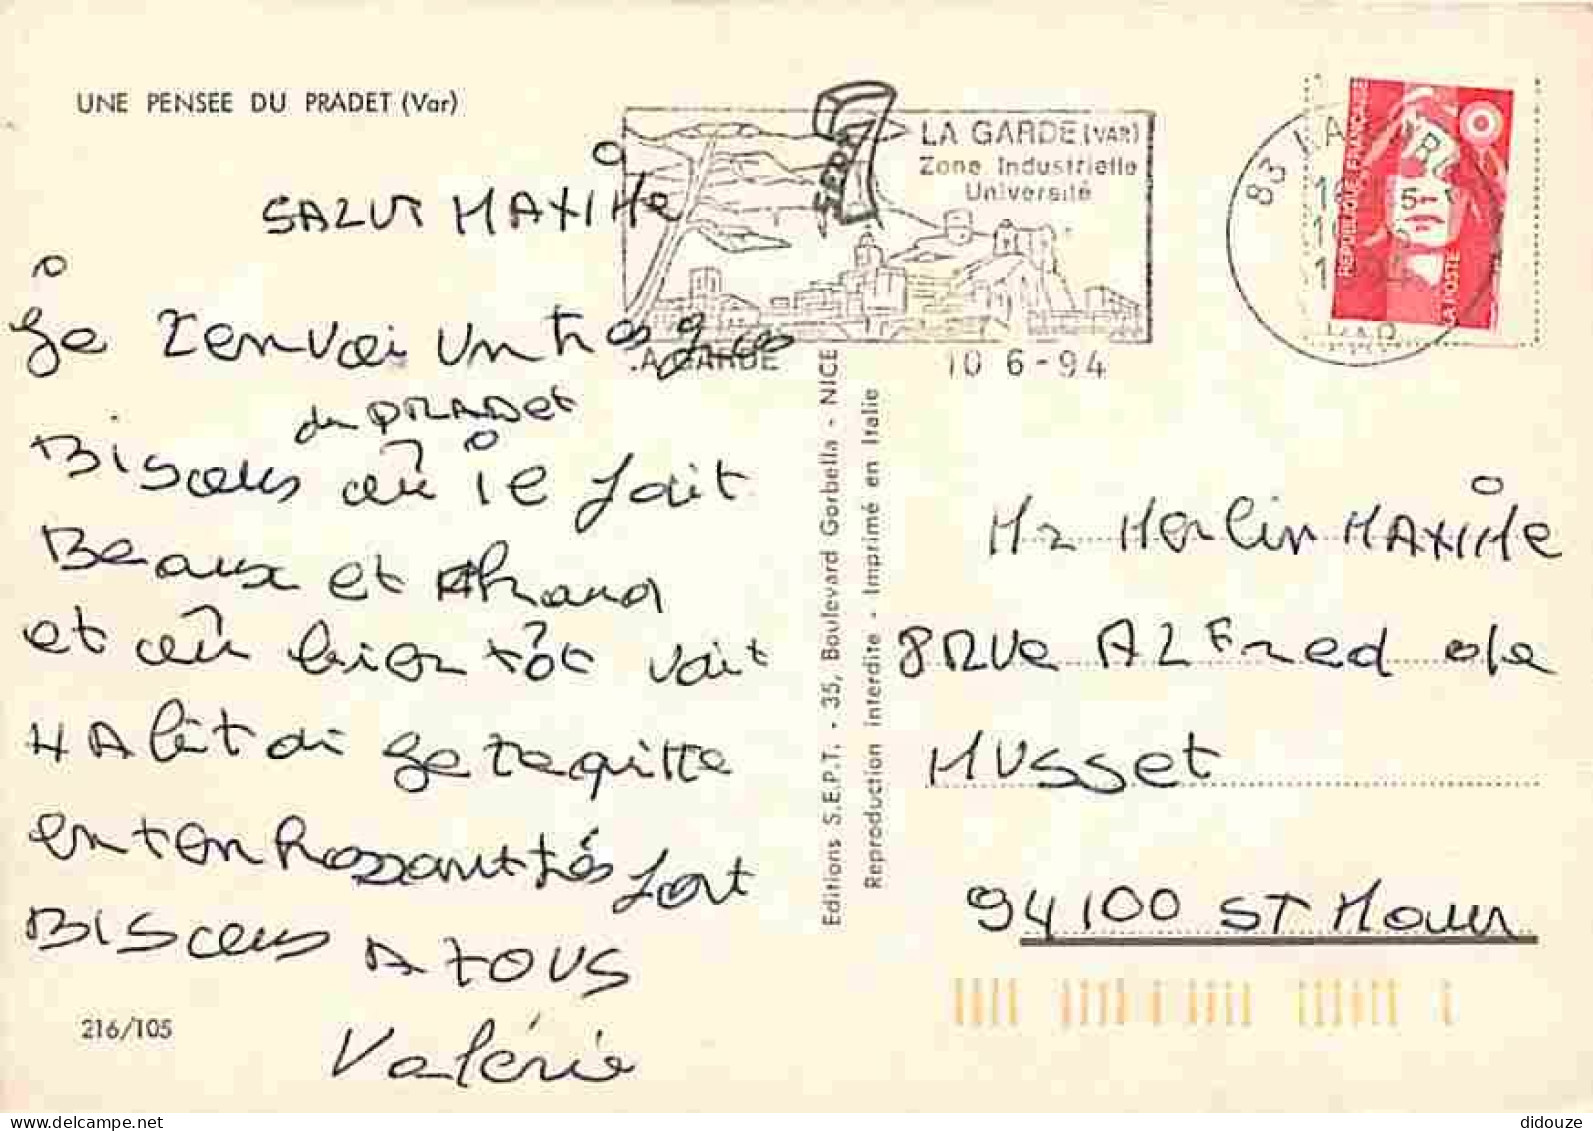 UNE PENSEE DU PRADET (Var)
SALUT MAXIME
Je T'envoi un tros gros
du PRADET
Bisous où ie fait
Beaux et chaud
et où bientôt vait
HAlêt di Je te quitte
en t'en hossant très fort
BISOUS A TOUS
Valérie
216/105
Editions S.E.P.T. - 35, Boulevard Gorbella - NICE
Reproduction interdite - Imprimé en Italie
SEPT
LA GARDE (VAR)
Zone Industrielle
Université
LA GARDE
10 6-94
83 LA GARDE
VAR
REPUBLIQUE FRANÇAISE
LA POSTE
Mr Merlin MAXIME
8 RUE ALFred de
MUsset
94100 ST Maur
delcampe.net
didouze